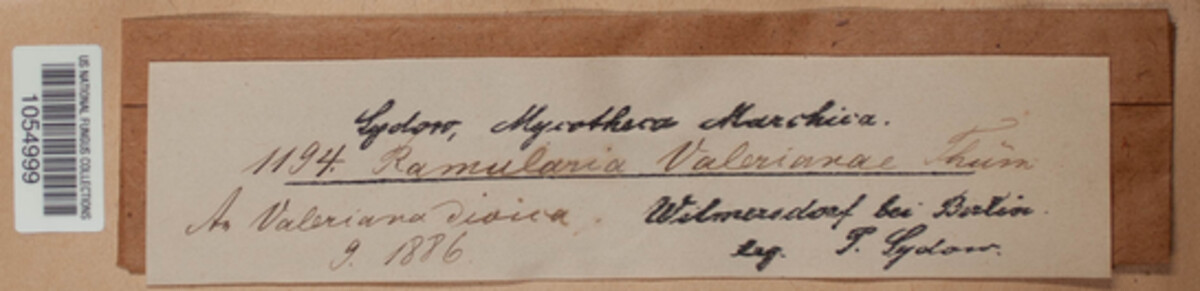 US NATIONAL FUNGUS COLLECTIONS
1054999
Sydow, Mycotheca Marchica.
1194. Ramularia Valerianae Thüm
An Valeriana dioica.
9. 1886.
Wilmersdorf bei Berlin.
leg. P. Sydow.